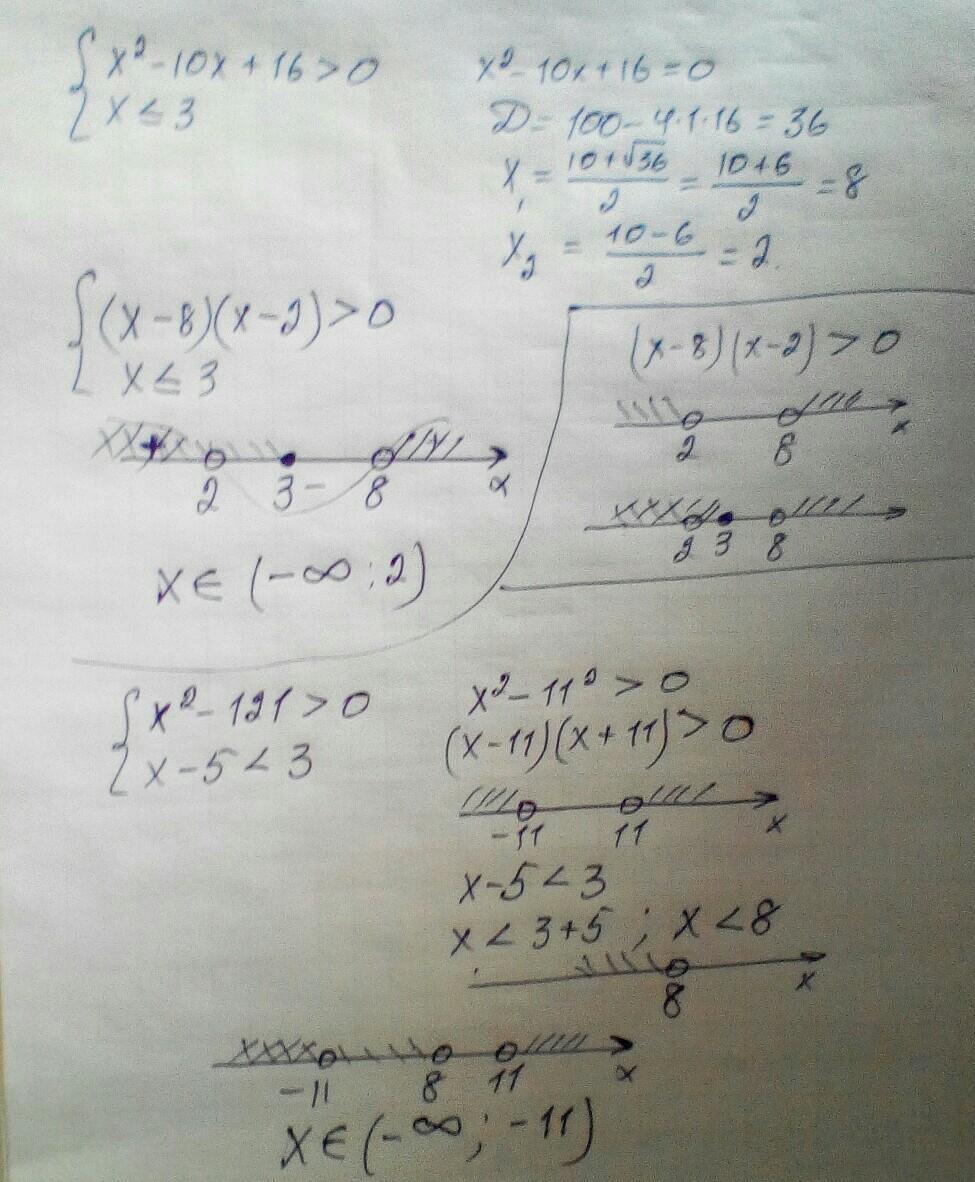 { x² - 10x + 16 > 0
x ≤ 3
x² - 10x + 16 = 0
D = 100 - 4·1·16 = 36
x₁ = (10+√36)/2 = (10+6)/2 = 8
x₂ = (10-6)/2 = 2.
{ (x-8)(x-2) > 0
x ≤ 3
2 3 - 8 x
x ∈ (-∞; 2)
(x-8)(x-2) > 0
2 8 x
2 3 8
{ x² - 121 > 0
x - 5 < 3
x² - 11² > 0
(x-11)(x+11) > 0
-11 11 x
x-5 < 3
x < 3+5 ; x < 8
8 x
-11 8 11 x
x ∈ (-∞; -11)